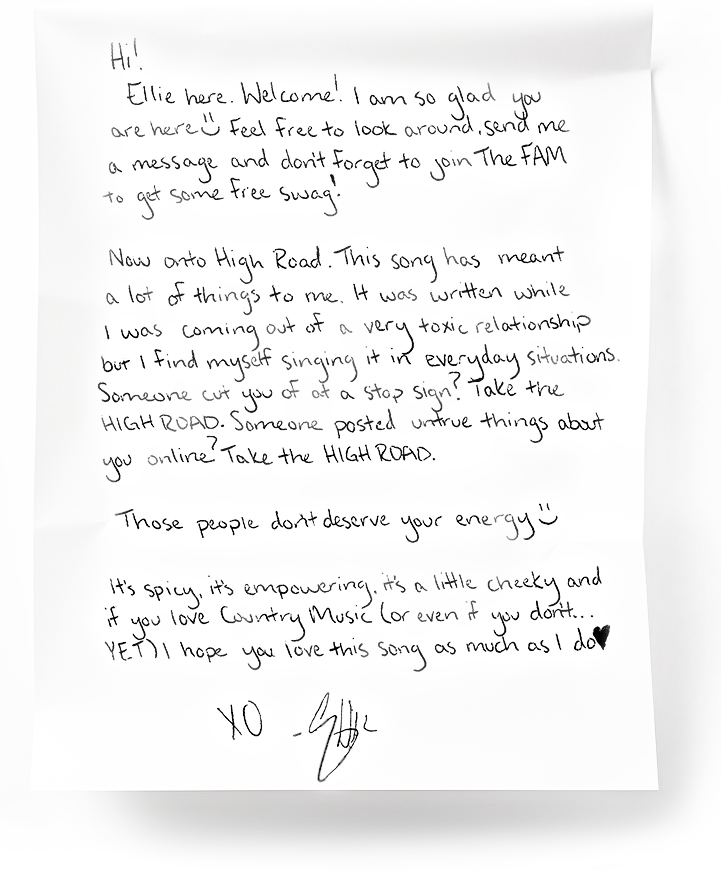 Hi!
Ellie here. Welcome! I am so glad you
are here Feel free to look around, send me
a message and don't forget to join The FAM
to get some free swag!
Now onto High Road. This song has meant
a lot of things to me. It was written while
I was coming out of a very toxic relationship
but I find myself singing it in everyday situations.
Someone cut you of at a stop sign? Take the
HIGH ROAD. Someone posted untrue things about
you online? Take the HIGH ROAD.
Those people don't deserve your energy
It's spicy, it's empowering, it's a little cheeky and
if you love Country Music (or even if you don't...
YET) I hope you love this song as much as I do♥
XO -Ellie